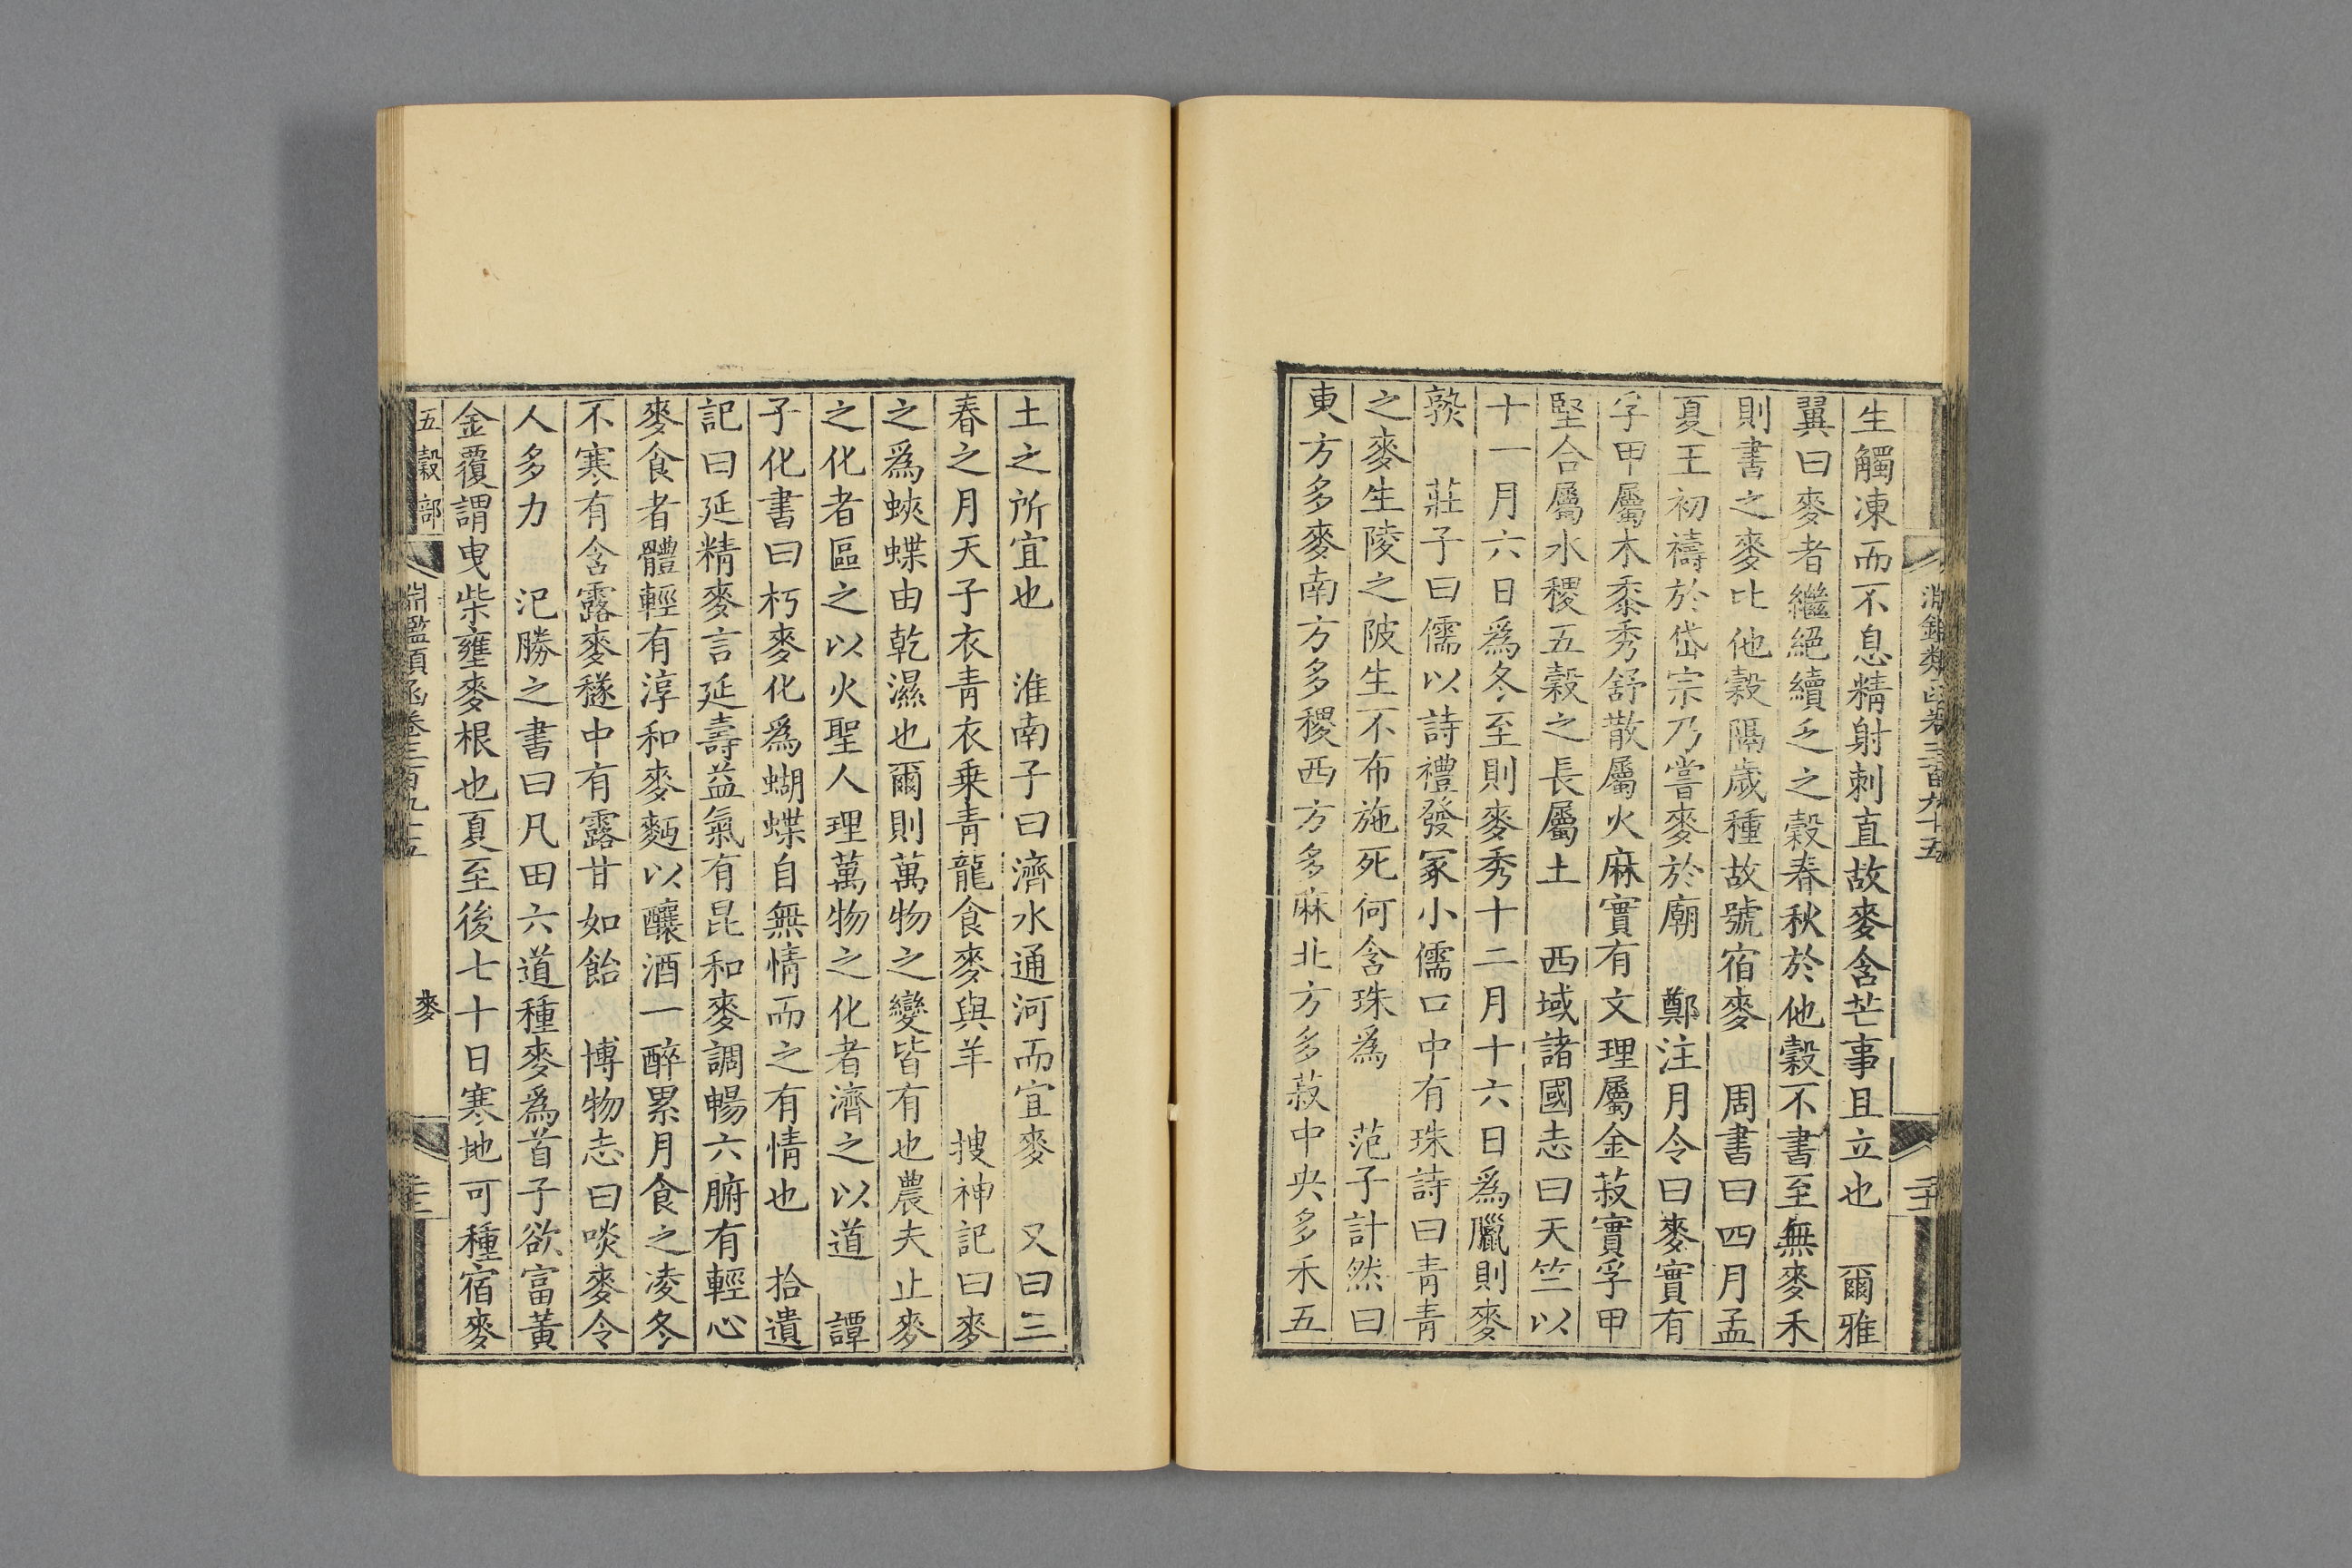 淵鑑類函卷三百九十五
生觸凍而不息精射刺直故麥含芒事且立也　爾雅
翼曰麥者繼絕續乏之穀春秋於他穀不書至無麥禾
則書之麥比他穀隔歲種故號宿麥　周書曰四月孟
夏王初禱於岱宗乃嘗麥於廟　鄭注月令曰麥實有
孚甲屬木黍秀舒散屬火麻實有文理屬金菽實孚甲
堅合屬水稷五穀之長屬土　西域諸國志曰天竺以
十一月六日爲冬至則麥秀十二月十六日爲臘則麥
孰　莊子曰儒以詩禮發冢小儒口中有珠詩曰青青
之麥生陵之陂生不布施死何含珠爲　范子計然曰
東方多麥南方多稷西方多麻北方多菽中央多禾五
土之所宜也　淮南子曰濟水通河而宜麥　又曰三
春之月天子衣青衣乗青龍食麥與羊　搜神記曰麥
之爲蛺蝶由乾濕也爾則萬物之變皆有也農夫止麥
之化者區之以火聖人理萬物之化者濟之以道　譚
子化書曰朽麥化爲蝴蝶自無情而之有情也　拾遺
記曰延精麥言延壽益氣有昆和麥調暢六腑有輕心
麥食者體輕有淳和麥麪以釀酒一醉累月食之凌冬
不寒有含露麥穟中有露甘如飴　博物志曰啖麥令
人多力　汜勝之書曰凡田六道種麥爲首子欲富黃
金覆謂曳柴壅麥根也夏至後七十日寒地可種宿麥
五穀部　淵鑑類函卷三百九十五　麥